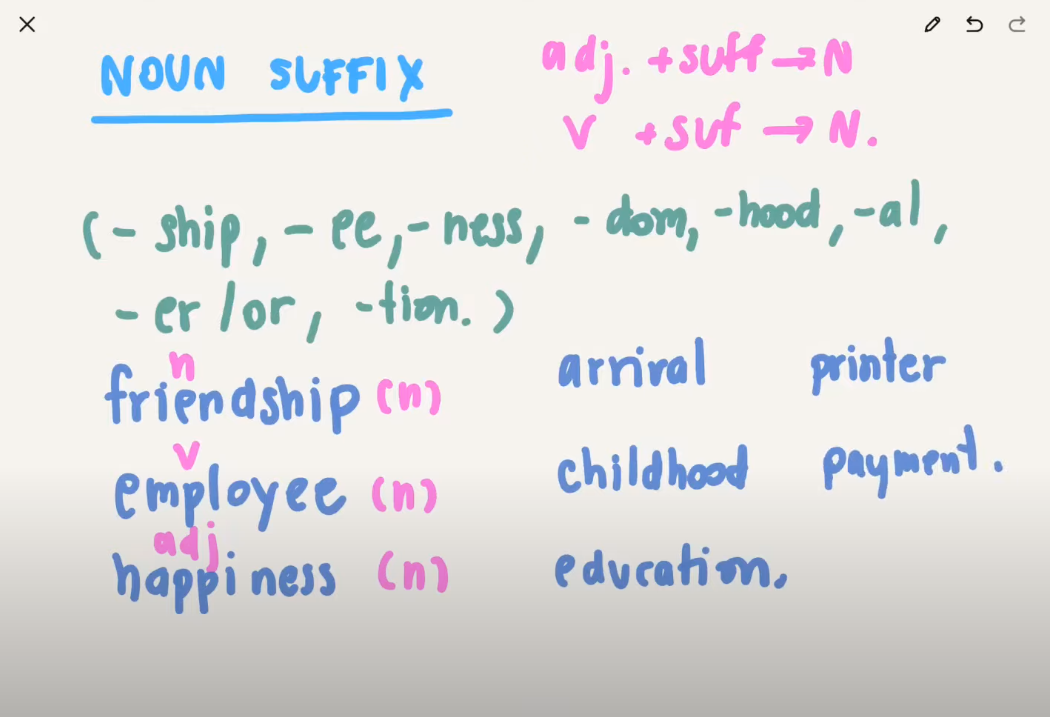 NOUN SUFFIX
adj. + suff → N
V + suf → N.
(- ship, - ee, - ness, - dom, - hood, - al,
- er / or, - tion. )
n
friendship (n)
v
employee (n)
adj
happiness (n)
arrival
childhood
education.
printer
payment.